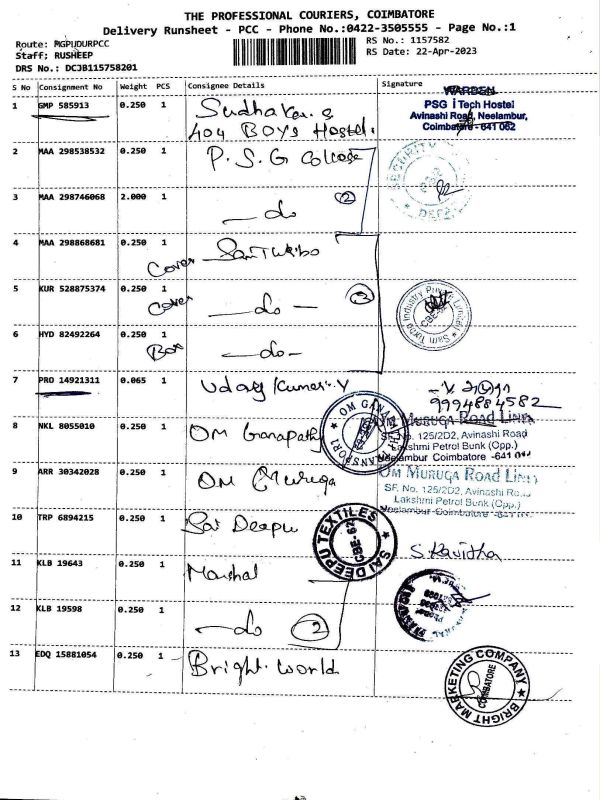 THE PROFESSIONAL COURIERS, COIMBATORE
Delivery Runsheet - PCC - Phone No.:0422-3505555 - Page No.:1
Route: MGPUDURPCC
RS No.: 1157582
Staff; RUSHEEP
RS Date: 22-Apr-2023
DRS No.: DCJB115758201
S No Consignment No Weight PCS Consignee Details Signature
1 GMP 585913 0.250 1 Sudhakar. S
404 BOYS Hostel.
WARDEN
PSG iTech Hostel
Avinashi Road, Neelambur,
Coimbatore - 641 062
2 MAA 298538532 0.250 1 P. S. G College
SECURITY
3 MAA 298746068 2.000 1 — do (2)
4 MAA 298868681 0.250 1 Cover
5 KUR 528875374 0.250 1 Cover — do — (3)
Sam Turbo Industry Private Limited
CBE-
6 HYD 82492264 0.250 1 Box — do –
7 PRO 14921311 0.065 1 Uday Kumar. V
9994884582
8 NKL 8055010 0.250 1 OM Ganapathy
OM GANAPATHY TRANSPORT
OM MURUGA ROAD LINES
SF. No. 125/2D2, Avinashi Road
Lakshmi Petrol Bunk (Opp.)
Neelambur Coimbatore -641
9 ARR 30342028 0.250 1 OM Muruga
OM MURUGA ROAD LINES
SF. No. 125/2D2, Avinashi
Lakshmi Petrol Bunk (Opp.)
Neelambur Coimbatore
10 TRP 6894215 0.250 1 Sai Deepu
SAI DEEPU TEXTILES
CBE-62
S. Kavitha
11 KLB 19643 0.250 1 Marshal
12 KLB 19598 0.250 1 — do (2)
13 EDQ 15881054 0.250 1 Bright. World
BRIGHT MARKETING COMPANY
COIMBATORE